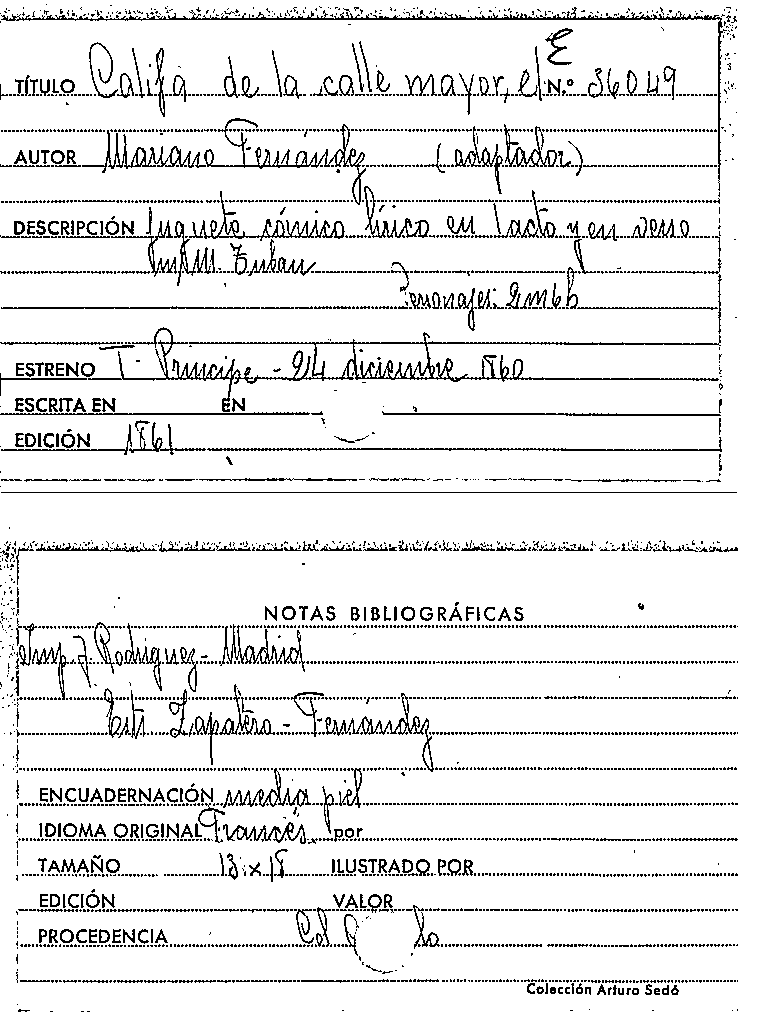 E
TÍTULO Califa de la calle mayor, el N.º 36049
AUTOR Mariano Fernández (adaptador)
DESCRIPCIÓN Juguete cómico lírico en 1 acto y en verso
M.
Personajes: 2m6h
ESTRENO T. Principe - 24 diciembre 1860
ESCRITA EN EN
EDICIÓN 1861
NOTAS BIBLIOGRÁFICAS
Imp. J. Rodriguez - Madrid
Estr. Zapatero - Fernández
ENCUADERNACIÓN media piel
IDIOMA ORIGINAL Francés por
TAMAÑO 13 x 18 ILUSTRADO POR
EDICIÓN VALOR
PROCEDENCIA Col
Colección Arturo Sedó